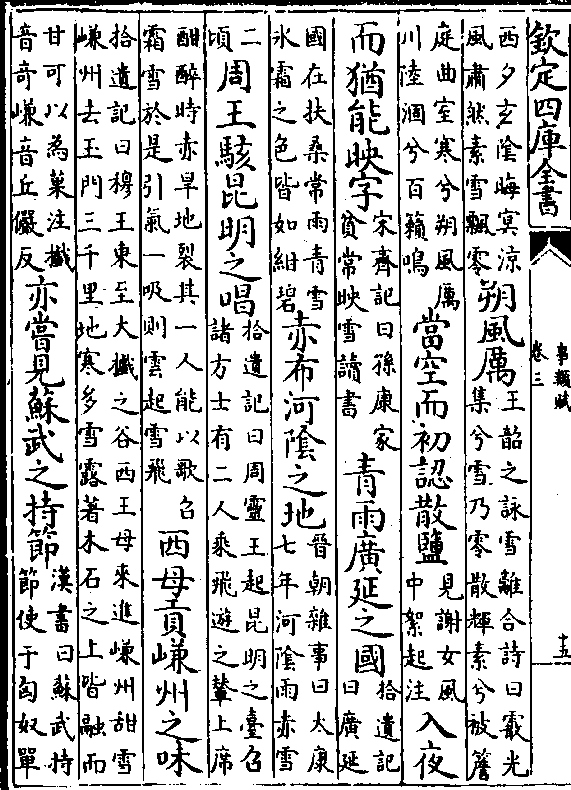 欽定四庫全書
事類賦
卷三
十五
西夕玄陰晦㝠涼
風肅然素雪飄零
朔風厲
王韶之詠雪離合詩曰霰光
集兮雪乃零散輝素兮被簷
庭曲室寒兮朔風厲
川陸涸兮百籟鳴
當空而初認散鹽
見謝女風
中絮起注
入夜
而猶能映字
宋齊記曰孫康家
貧常映雪讀書
青雨廣延之國
拾遺記
曰廣延
國在扶桑常雨青雪
氷霜之色皆如紺碧
赤布河陰之地
晉朝雜事曰太康
七年河陰雨赤雪
二
頃
周王駭昆明之唱
拾遺記曰周靈王起昆明之臺召
諸方士有二人乘飛遊之輦上席
酣醉時赤旱地裂其一人能以歌召
霜雪於是引氣一吸則雲起雪飛
西母貢嵰州之味
拾遺記曰穆王東至大之谷西王母來進嵰州甜雪
嵰州去玉門三千里地寒多雪露著木石之上皆融而
甘可以為菓注
音奇嵰音丘儼反
亦嘗見蘇武之持節
漢書曰蘇武持
節使于匈奴單